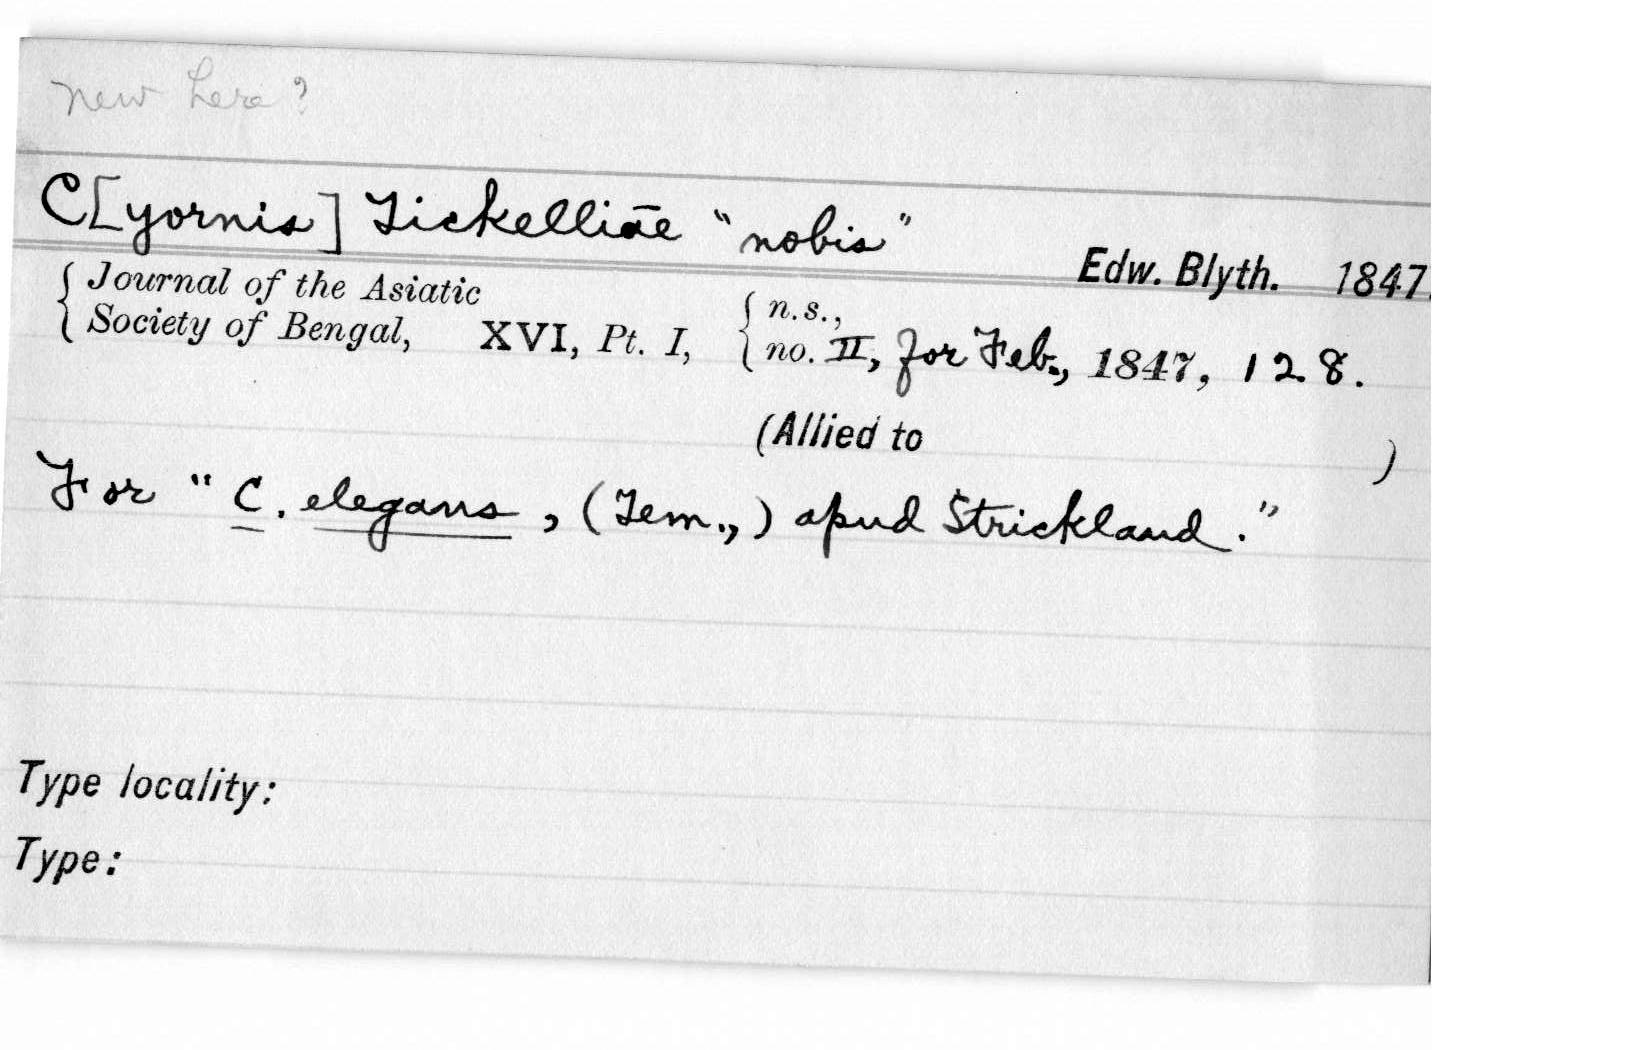 new here?
C[yornis] Tickelliæ "nobis"
Edw. Blyth. 1847.
{ Journal of the Asiatic
{ Society of Bengal, XVI, Pt. I, { n.s.,
{ no. II, for Feb., 1847, 128.
(Allied to )
For "C. elegans, (Tem.,) apud Strickland."
Type locality:
Type: